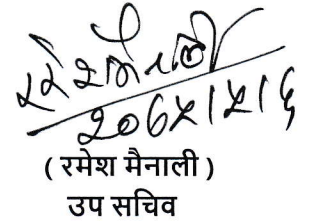 २०६५।५।६
( रमेश मैनाली )
उप सचिव